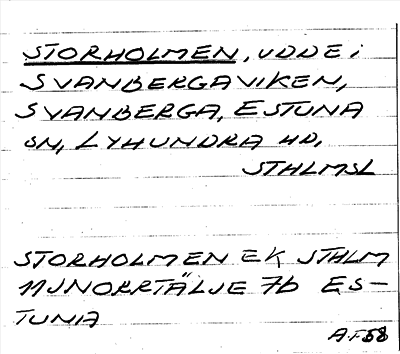 STORHOLMEN, UDDE i
SVANBERGAVIKEN,
SVANBERGA, ESTUNA
SN, LYHUNDRA HD,
STHLMSL
STORHOLMEN EK STHLM
11J NORRTÄLJE 7b ES-
TUNA
AF58